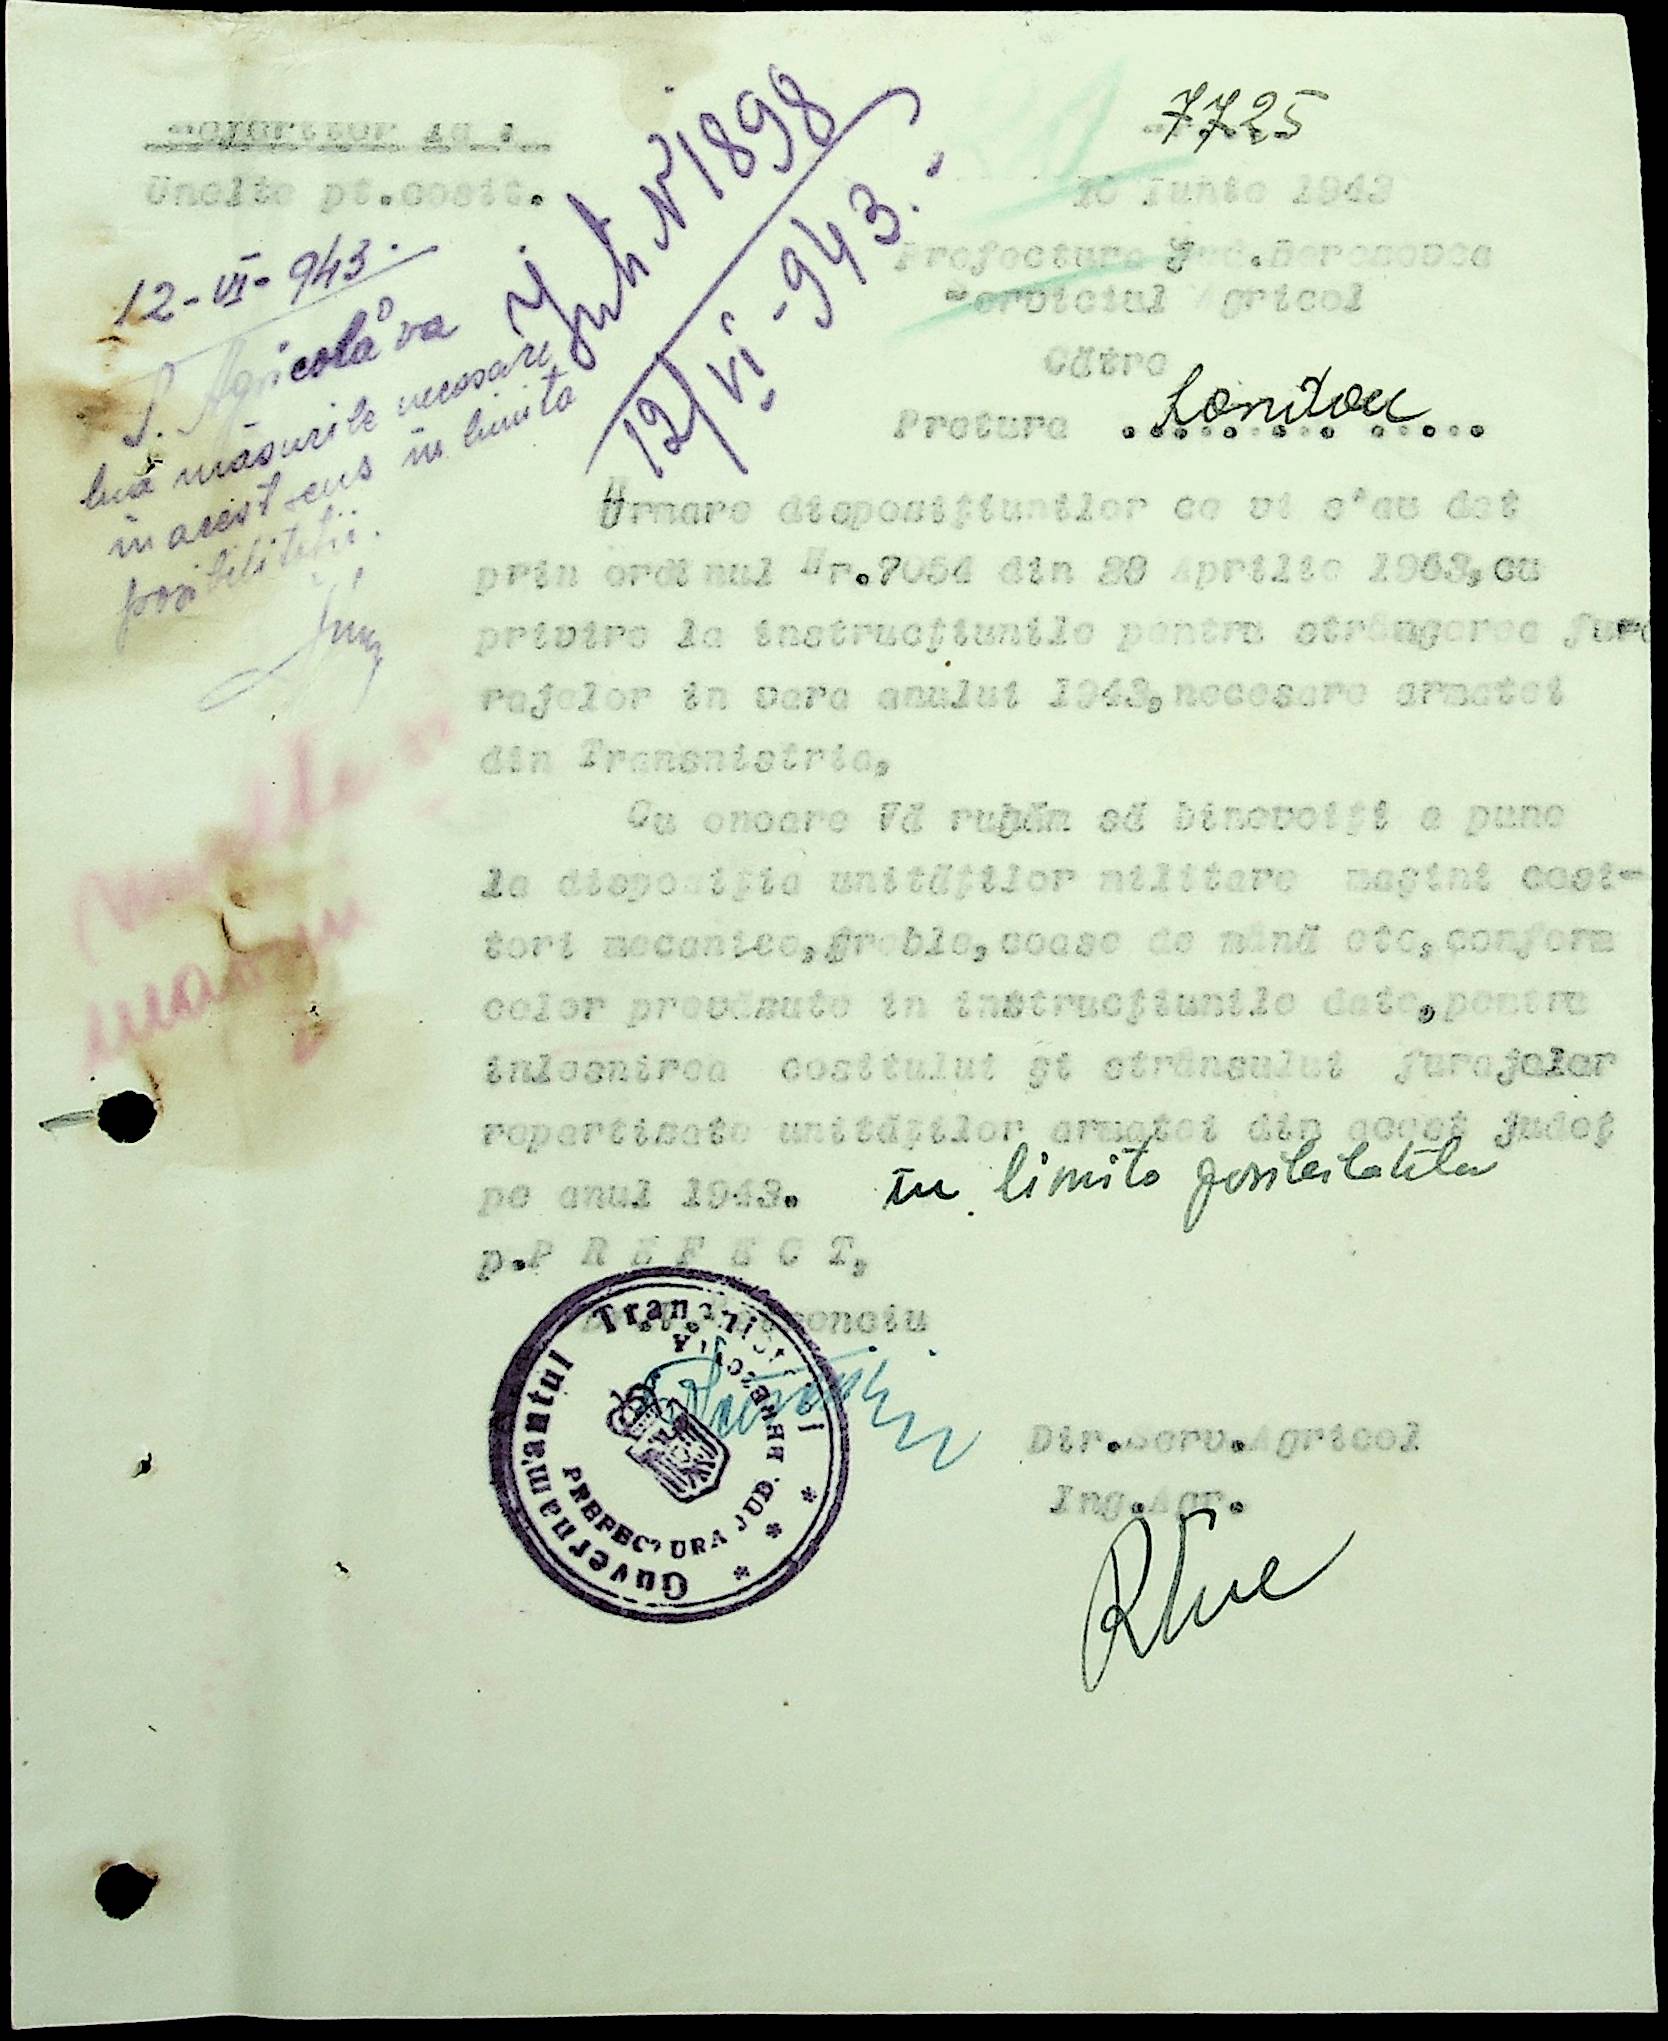 Referitor la :
Unelte pt.cosit.
7725
10 Iunie 1943
Prefectura Jud.Berezovca
Serviciul Agricol
Către
Pretura Londou
Int. Nr 1898
12/VI-943.
12-VI-943.
S. Agricolă va
lua măsurile necesare
în acest sens în limita
posibilităţii.
Urmare dispoziţiunilor ce vi s'au dat
prin ordinul Nr.7054 din 28 Aprilie 1943, cu
privire la instrucţiunile pentru strângerea fura
rajelor in vara anului 1943, necesare armatei
din Transnistria,
Cu onoare Vă rugăm să binevoiţi a pune
la dispoziţia unităţilor militare maşini cosi-
tori mecanice, greble, coase de mână etc, conform
celor prevăzute in instrucţiunile date, pentru
inlesnirea cositului şi strânsului furajelor
repartizate unităţilor armatei din acest judeţ
pe anul 1943. în limita posibilităţilor
p.P R E F E C T,
Guvernamantul Transnistriei
PREFECTURA JUD. BEREZOVCA
Dir.Serv.Agricol
Ing.Agr.